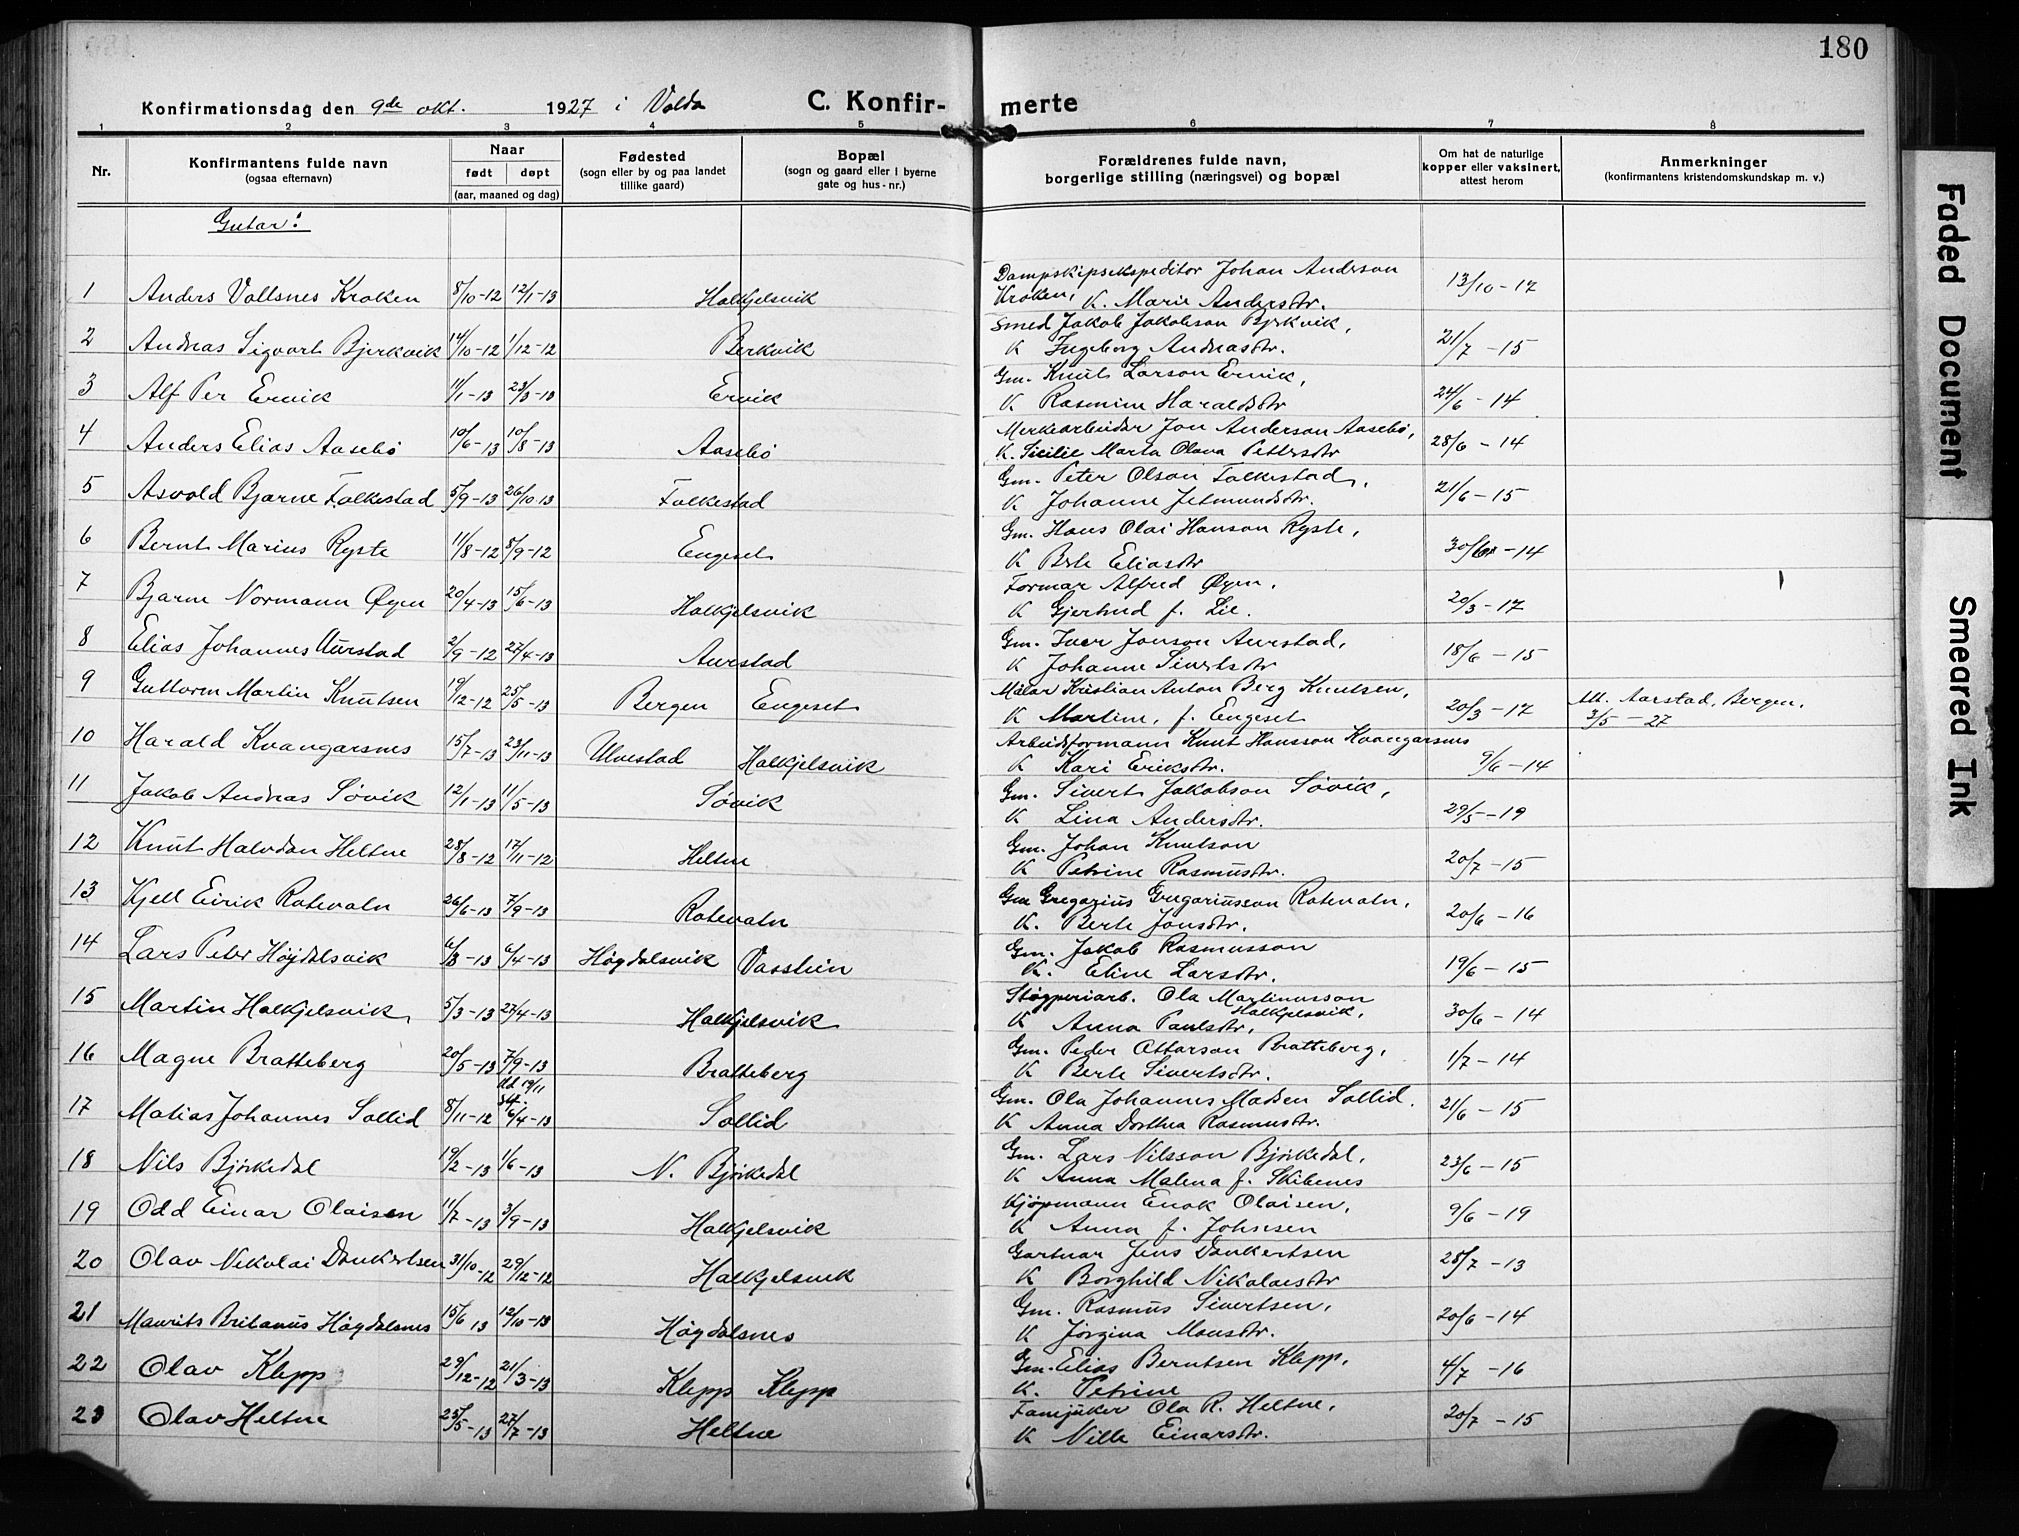 180
Konfirmationsdag den 9de okt. 1927 i Volda C. Konfir- merte
1 2 3 4 5 6 7 8
Nr. Konfirmantens fulde navn (ogsaa efternavn) Naar født døpt (aar, maaned og dag) Fødested (sogn eller by og paa landet tillike gaard) Bopæl (sogn og gaard eller i byerne gate og hus-nr.) Forældrenes fulde navn, borgerlige stilling (næringsvei) og bopæl Om hat de naturlige kopper eller vaksinert, attest herom Anmerkninger (konfirmantens kristendomskundskap m. v.)
Gutar:
1 Anders Vollsnes Kroken 8/10-12 12/1-13 Halkjelsvik Dampskipsekspeditør Johan Anderson Kroken, K. Marie Andersdtr. 13/10-17
2 Andreas Sigvart Bjerkvik 14/10-12 1/12-12 Berkvik Smed Jakob Jakobson Bjrkvik, K Ingeborg Andreasdtr. 21/7-15
3 Alf Per Ervik 11/1-13 23/3-13 Ervik Gm. Knut Larson Ervik, K Rasmine Haraldsdtr 24/6-14
4 Anders Elias Aasebø 10/6-13 10/8-13 Aasebø Merkearbeider Jon Anderson Aasebø, K. Sicilie Marta Olava Pettersdtr 28/6-14
5 Asvald Bjarne Folkestad 5/9-13 26/10-13 Folkestad Gm. Peter Olson Folkestad, K Johanne Jetmundsdtr. 21/6-15
6 Bernt Marius Ryste 11/8-12 8/9-12 Engeset Gm. Hans Olai Hanson Ryste, K Berte Eliasdtr 30/6-14
7 Bjarne Normann Øyen 20/4-13 15/6-13 Halkjelsvik Formar Alfred Øyen, K Gjertrud f. Lie. 20/3-17
8 Elias Johannes Aurstad 2/9-12 27/4-13 Aurstad Gm. Iver Jonson Aurstad, K Johanne Sivertsdtr 18/6-15
9 Guttorm Martin Knutsen 19/12-12 25/5-13 Bergen Engeset Målar Kristian Anton Berg Knutsen, K Martine, f. Engeset 20/3-17 Att. Aarstad, Bergen, 3/5-27
10 Harald Kvangarsnes 15/7-13 23/11-13 Ulvestad Halkjelsvik Arbeidsformann Knut Hansson Kvangarsnes K Kari Eriksdtr. 9/6-14
11 Jakob Andreas Søvik 12/1-13 11/5-13 Søvik Gm. Sivert Jakobson Søvik, K Lina Andersdtr. 29/5-19
12 Knut Halvdan Heltne 28/8-12 17/11-12 Heltne Gm. Johan Knutson K Petrine Rasmusdtr. 20/7-15
13 Kjell Eirik Rotevatn 26/6-13 7/9-13 Rotevatn Gm Gregarius Gregariusson Rotevatn, K. Berte Jonsdtr. 20/6-16
14 Lars Peter Højdalsvik 6/3-13 6/4-13 Høgdalsvik Vasslien Gm. Jakob Rasmusson K. Eline Larsdtr. 19/6-15
15 Martin Halkjelsvik 5/3-13 27/4-13 Halkjelsvik Støyperiarb. Ola Martinusson Halkjelsvik, K Anna Paulsdtr, 30/6-14
16 Magne Bratteberg 20/5-13 7/9-13 Bratteberg Gm. Peder Ottarson Bratteberg, K Berte Sivertsdtr. 1/7-14
17 Matias Johannes Sollid 8/11-12 hd 19/11 stf. 6/4-13 Sollid Gm. Ola Johannes Madsen Sollid. K Anna Dorthea Rasmusdtr. 21/6-15
18 Nils Bjørkedal 19/2-13 1/6-13 N. Bjørkedal Gm. Lars Nilsson Bjørkedal, K Anna Malena f. Skibenes 23/6-15
19 Odd Einar Olaisen 11/7-13 3/9-13 Halkjelsvik Kjøpmann Enok Olaisen, K Anna f. Johnsen 9/6-19
20 Olav Nikolai Dankertsen 31/10-12 29/12-12 Halkjelsvik Gartnar Jens Dankertsen K Borghild Nikolaisdtr 28/7-13
21 Maurits Britanus Høgdalsnes 15/6 13 12/10-13 Høgdalsnes Gm. Rasmus Sivertsen, K Jørgina Monsdtr. 20/6-14
22 Olav Klepp 29/12-12 21/3-13 Klepp Klepp Gm. Elias Berntsen Klepp, K. Petrine 4/7-16
23 Olav Heltne 25/5-13 27/7-13 Heltne Fanejunker Ola R. Heltne, K Nille Einarsdtr. 20/7-15
Faded Document
Smeared Ink